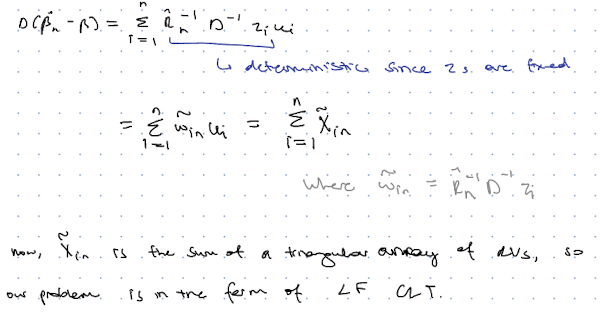 D(β̂ₙ - β) = Σᵢ₌₁ⁿ R̂ₙ⁻¹ D⁻¹ zᵢ uᵢ
↳ deterministic since zs are fixed
= Σᵢ₌₁ⁿ w̃ᵢₙ uᵢ = Σᵢ₌₁ⁿ X̃ᵢₙ
where w̃ᵢₙ = R̂ₙ⁻¹ D⁻¹ zᵢ
now, X̃ᵢₙ is the sum of a triangular array of RVs, so
our problem is in the form of LF CLT.